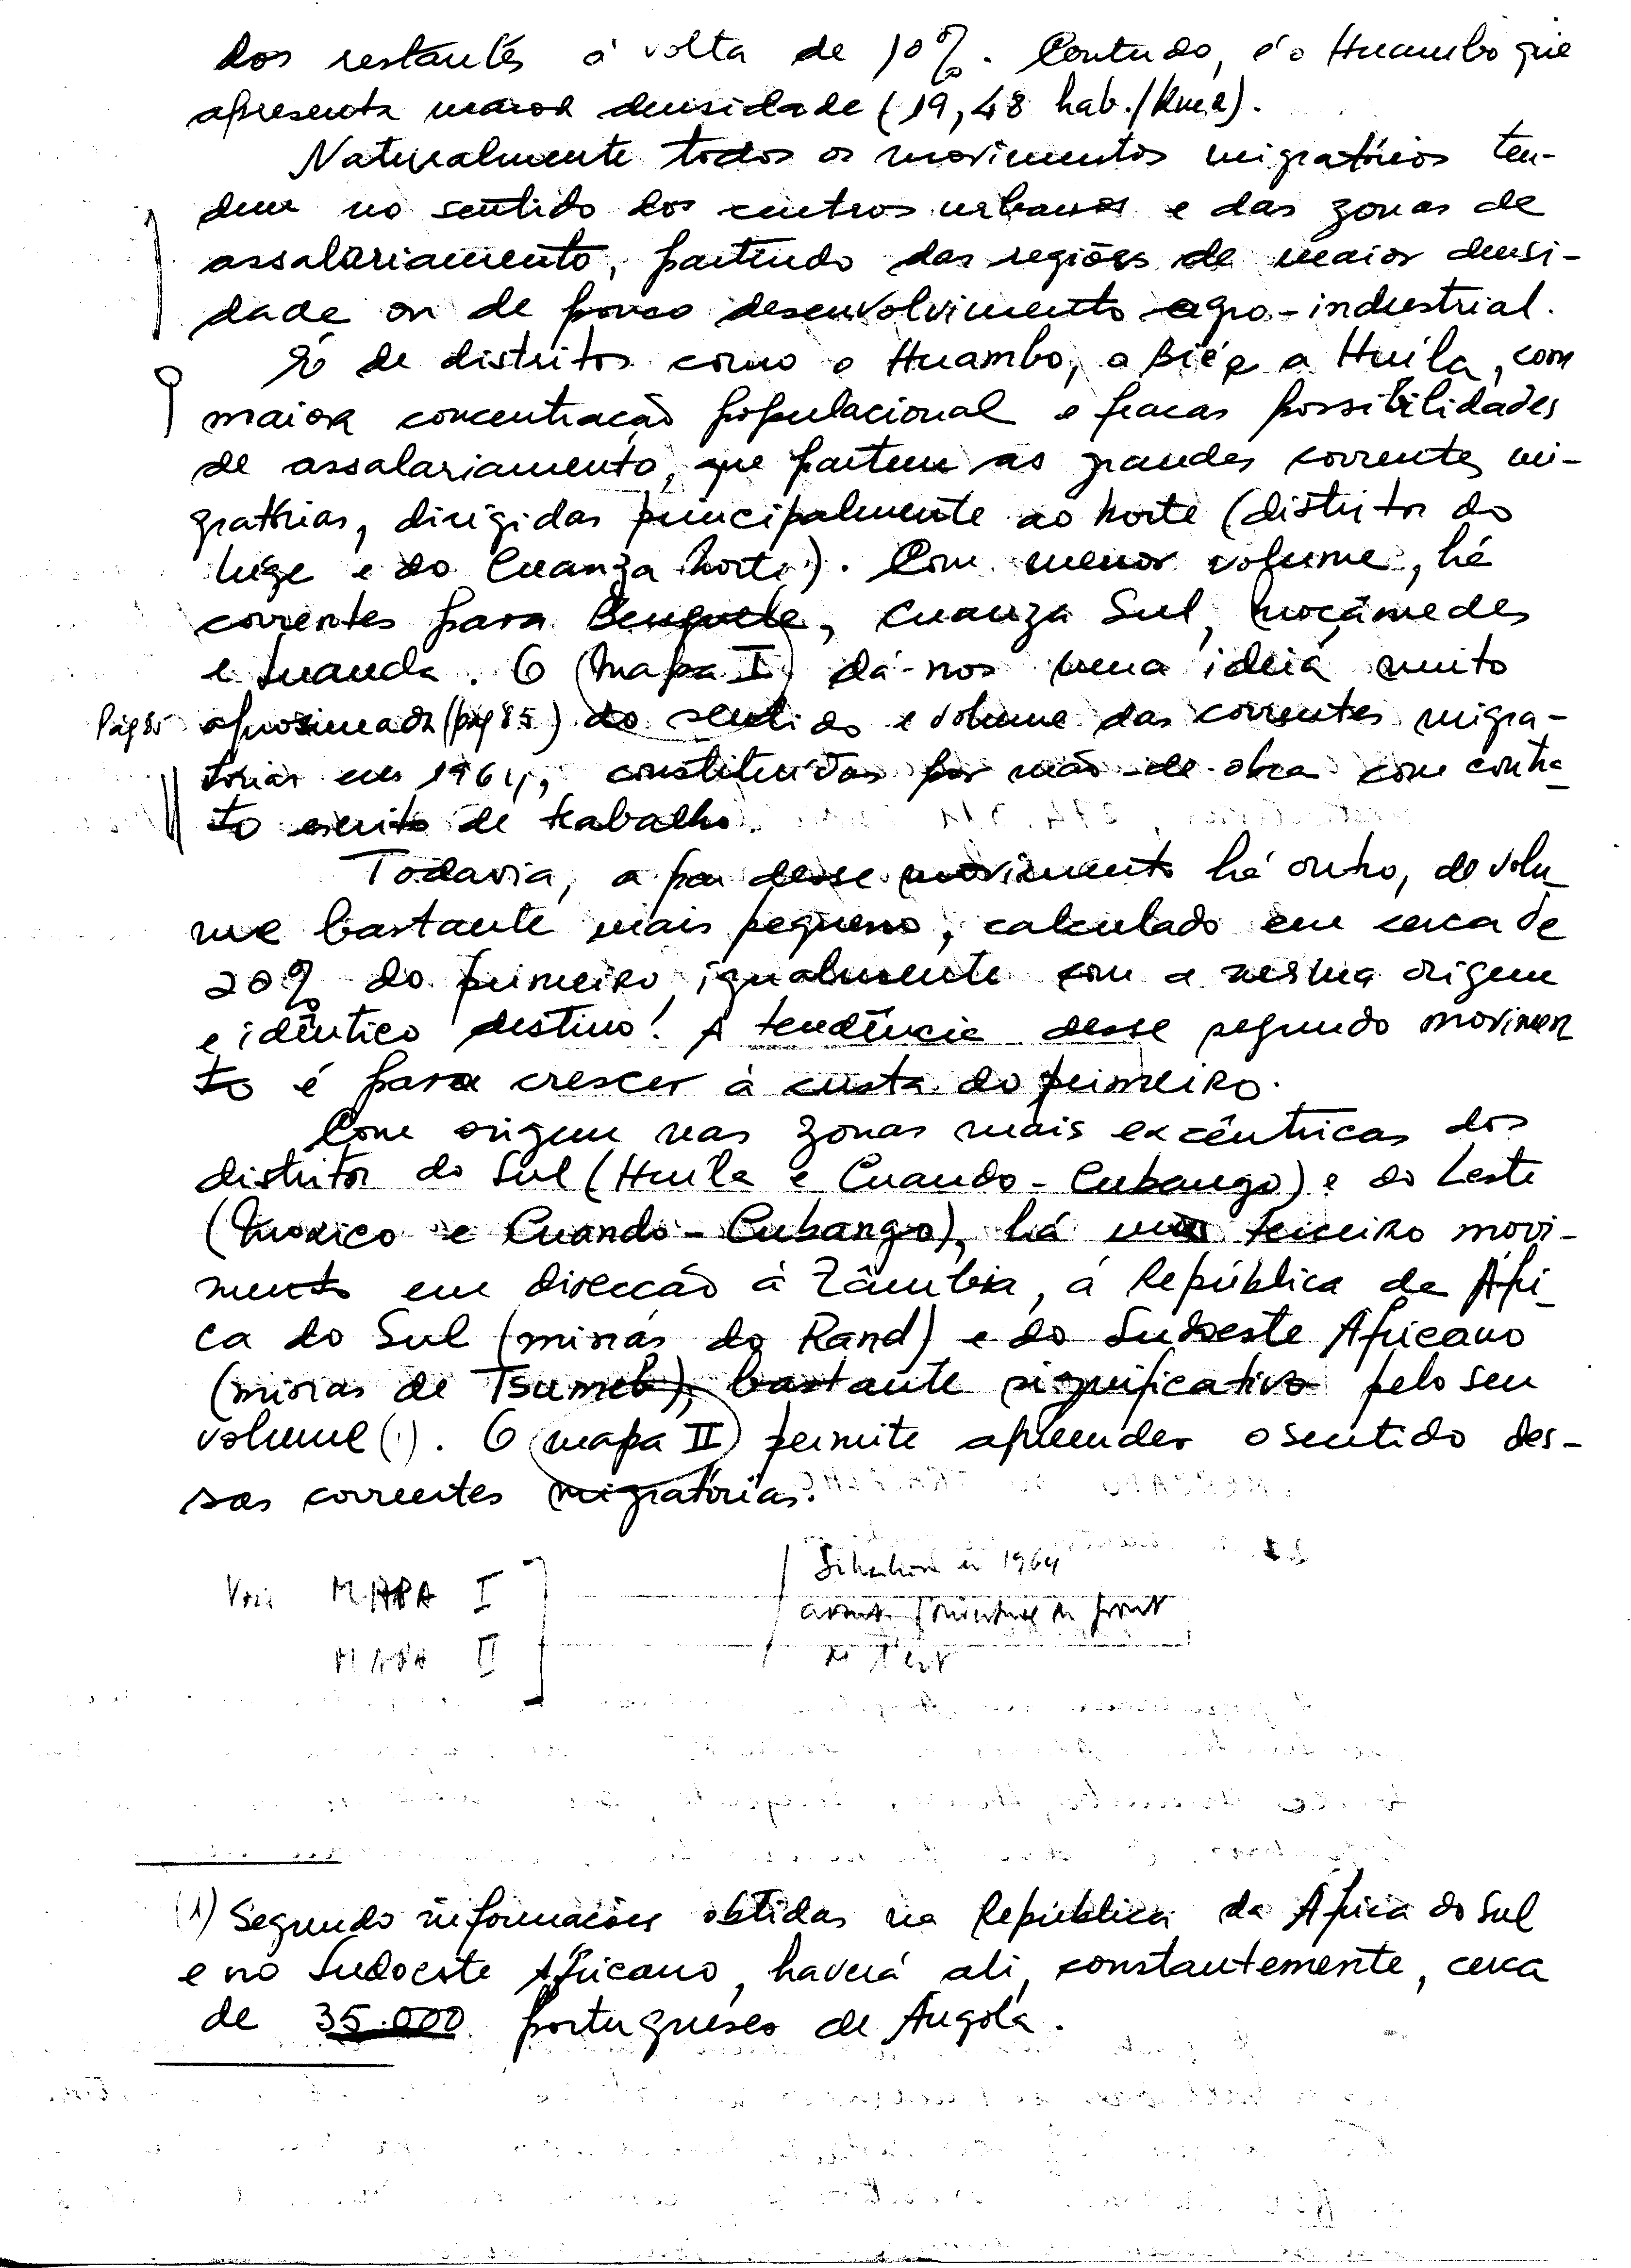 dos restantes á volta de 10%. Contudo, é o Huambo que
apresenta maior densidade (19,48 hab./km2).
Naturalmente todos os movimentos migratórios ten-
dem no sentido dos centros urbanos e das zonas de
assalariamento, partindo das regiões de maior densi-
dade ou de pouco desenvolvimento agro-industrial.
É de distritos como o Huambo, o Bié e a Huíla, com
maior concentração populacional e fracas possibilidades
de assalariamento, que partem as grandes correntes mi-
gratórias, dirigidas principalmente ao Norte (distritos do
Uíge e do Cuanza Norte). Com menor volume, há
correntes para Benguela, Cuanza Sul, Moçâmedes
e Luanda. O (Mapa I) dá-nos uma ideia muito
Pág 85 aproximada (pág 85) do sentido e volume das correntes migra-
tórias em 1964, constituídas por mão-de-obra com contra-
to escrito de trabalho.
Todavia, a par desse movimento há outro, de volu-
me bastante mais pequeno, calculado em cerca de
20% do primeiro, igualmente com a mesma origem
e idêntico destino! A tendência desse segundo movimen
to é para crescer à custa do primeiro.
Com origem nas zonas mais excêntricas dos
distritos do Sul (Huíla e Cuando-Cubango) e do Leste
(Moxico e Cuando-Cubango), há um terceiro movi-
mento em direcção á Zâmbia, á República da Áfri-
ca do Sul (minas do Rand) e do Sudoeste Africano
(minas de Tsumeb), bastante significativo pelo seu
volume (1). O (mapa II) permite apreender o sentido des-
sas correntes migratórias.
Voir MAPA I
Situation en 1964
avant l'ouverture du front
MAPA II
de l'Est
(1) Segundo informações obtidas na República da África do Sul
e no Sudoeste Africano, haverá ali, constantemente, cerca
de 35.000 portugueses de Angola.